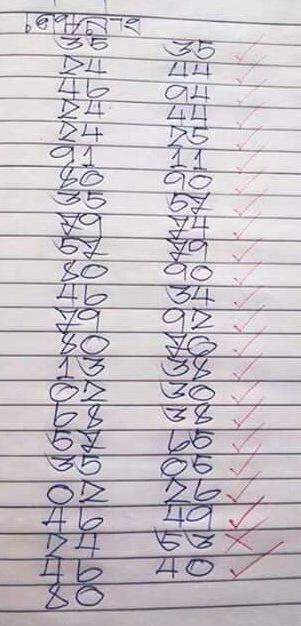 35 35
24 44
46 94
24 44
24 25
91 11
80 90
35 57
79 74
57 79
80 90
46 34
79 92
80 70
13 38
02 30
68 38
57 65
35 05
02 26
46 49
24 53
46 40
80